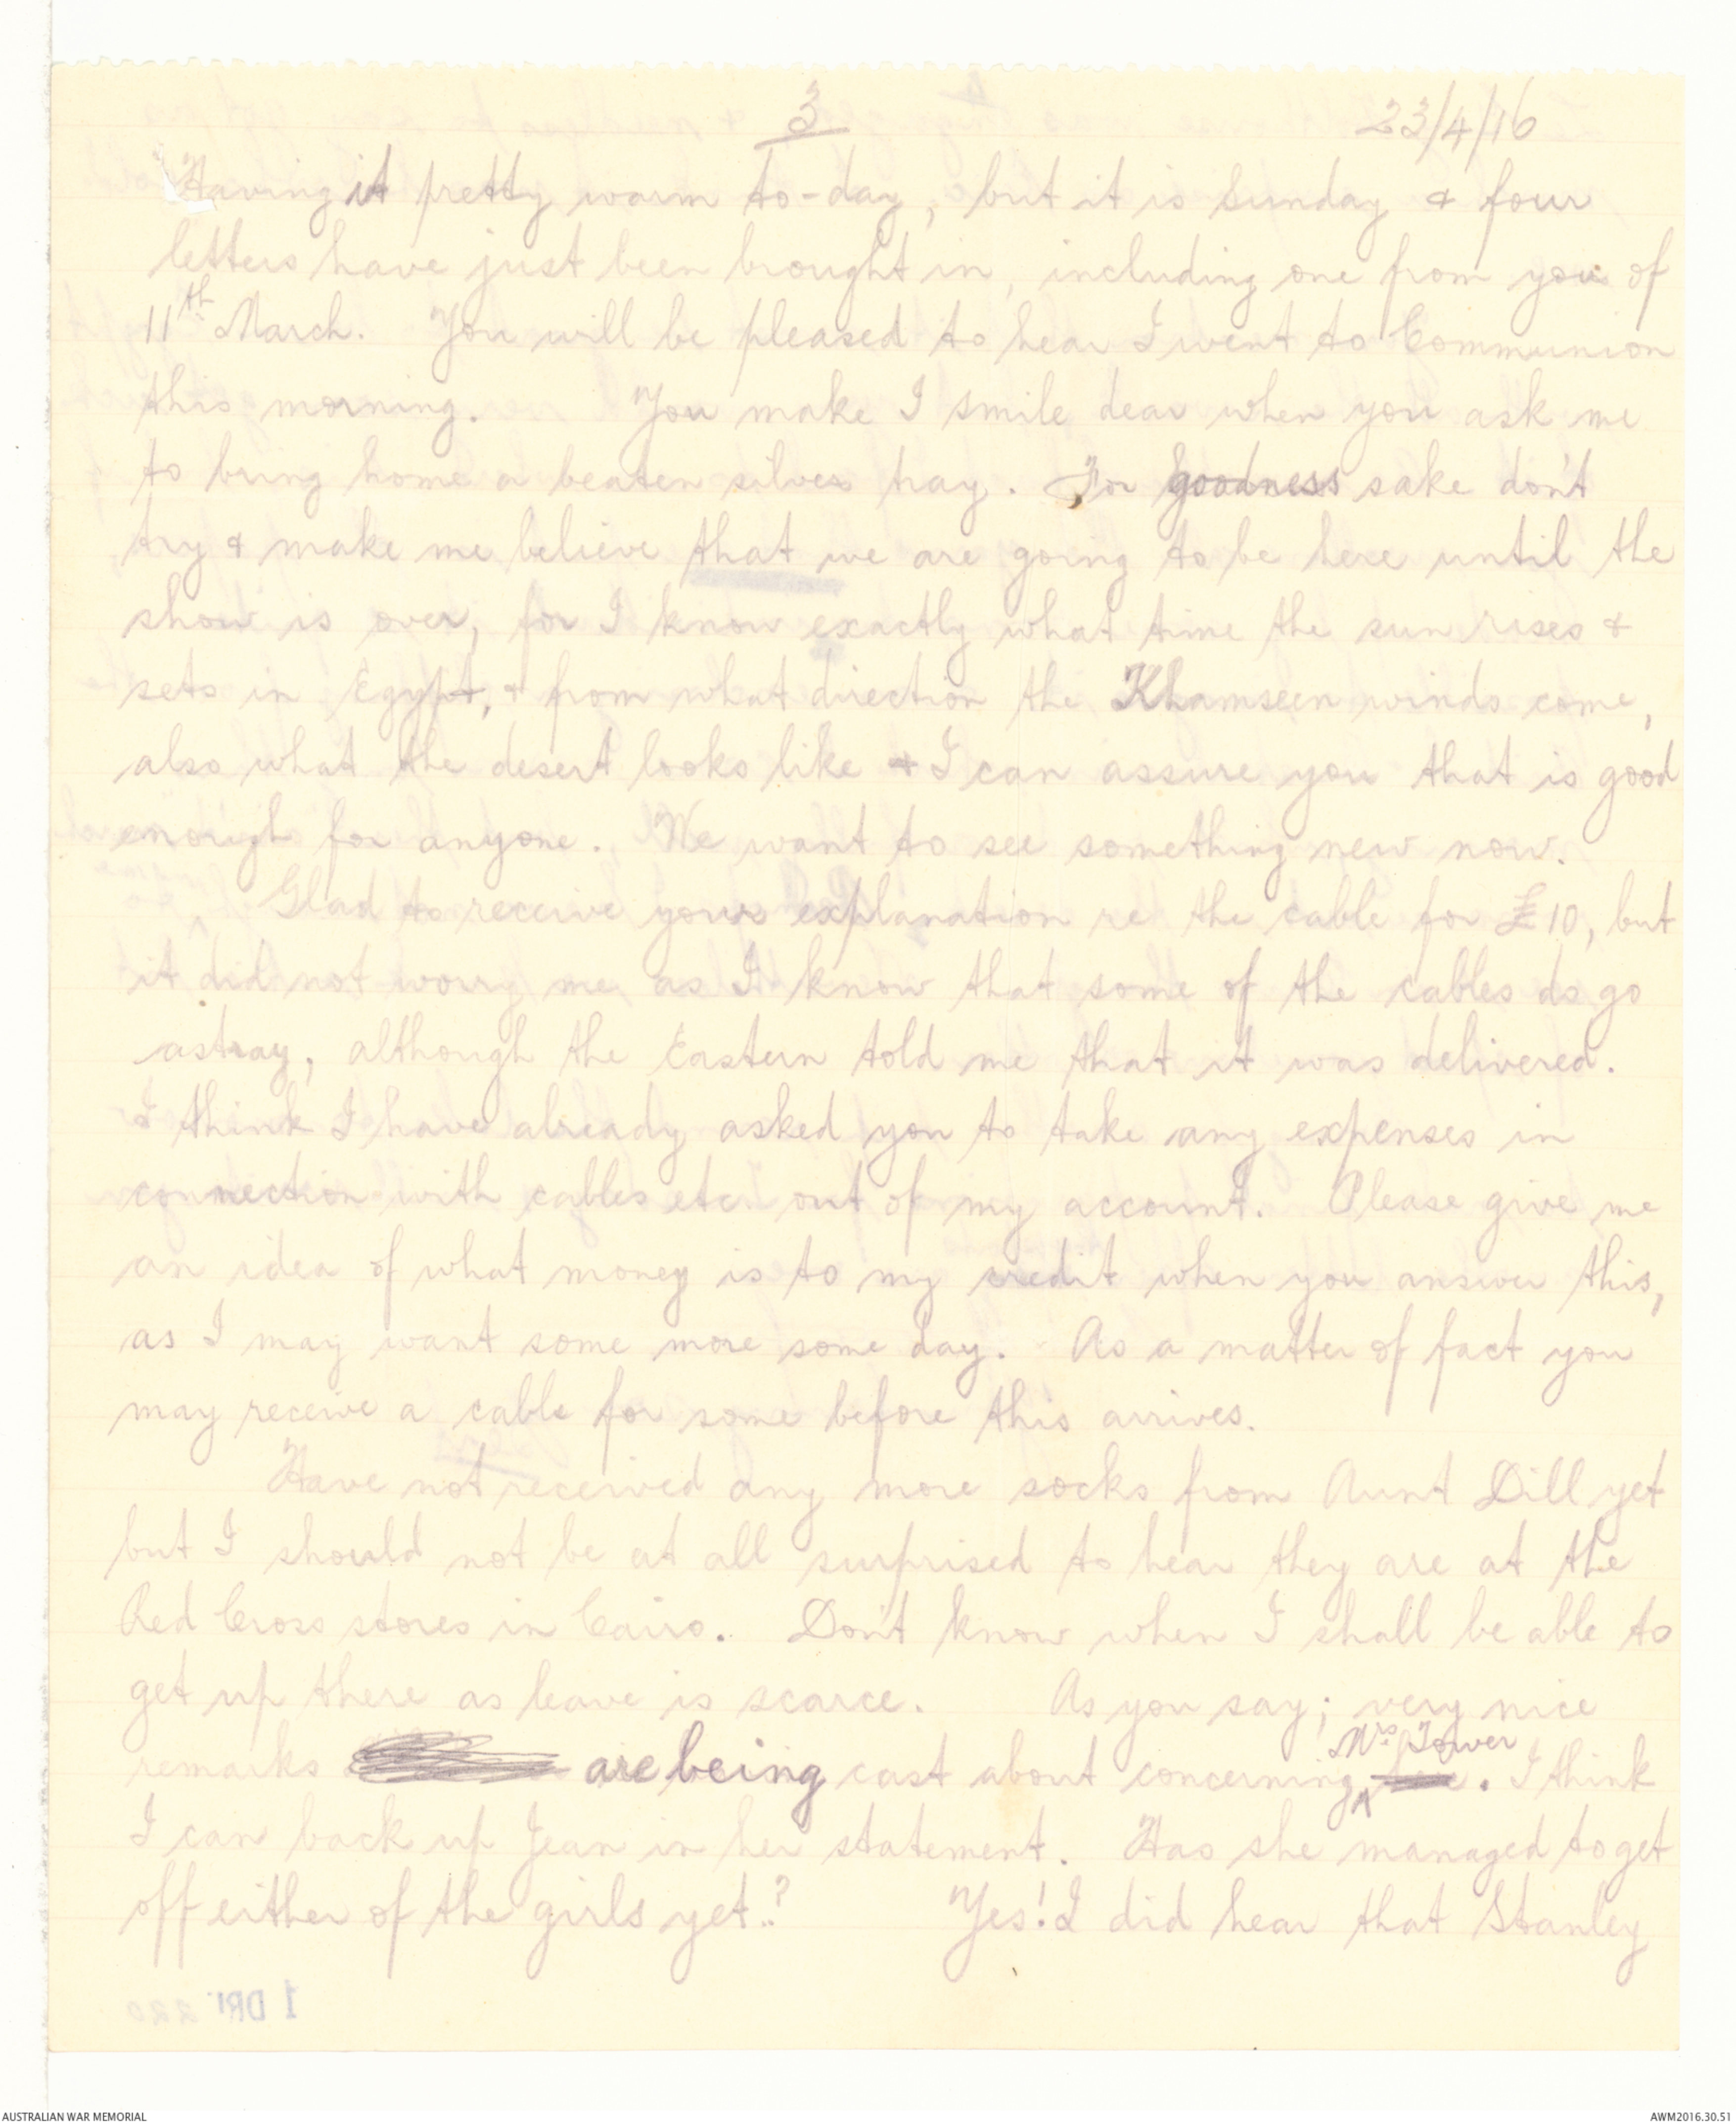 3
23/4/16
Having it pretty warm to-day, but it is Sunday & four
letters have just been brought in, including one from you of
11th March. You will be pleased to hear I went to Communion
this morning. You make I smile dear when you ask me
to bring home a beaten silver tray. For goodness sake don't
try & make me believe that we are going to be here until the
show is over, for I know exactly what time the sun rises &
sets in Egypt, & from what direction the Khamseen winds come,
also what the desert looks like & I can assure you that is good
enough for anyone. We want to see something new now.
Glad to receive your explanation re the cable for £10, but
it did not worry me as I know that some of the cables do go
astray, although the Eastern told me that it was delivered.
I think I have already asked you to take any expenses in
connection with cables etc. out of my account. Please give me
an idea of what money is to my credit when you answer this,
as I may want some more some day. As a matter of fact you
may receive a cable for some before this arrives.
Have not received any more socks from Aunt Dill yet
but I should not be at all surprised to hear they are at the
Red Cross stores in Cairo. Don't know when I shall be able to
get up there as leave is scarce. As you say; very nice
remarks are being cast about concerning Mrs Tower. I think
I can back up Jean in her statement. Has she managed to get
off either of the girls yet..? Yes! I did hear that Stanley
1 DRL 220
AUSTRALIAN WAR MEMORIAL
AWM2016.30.51